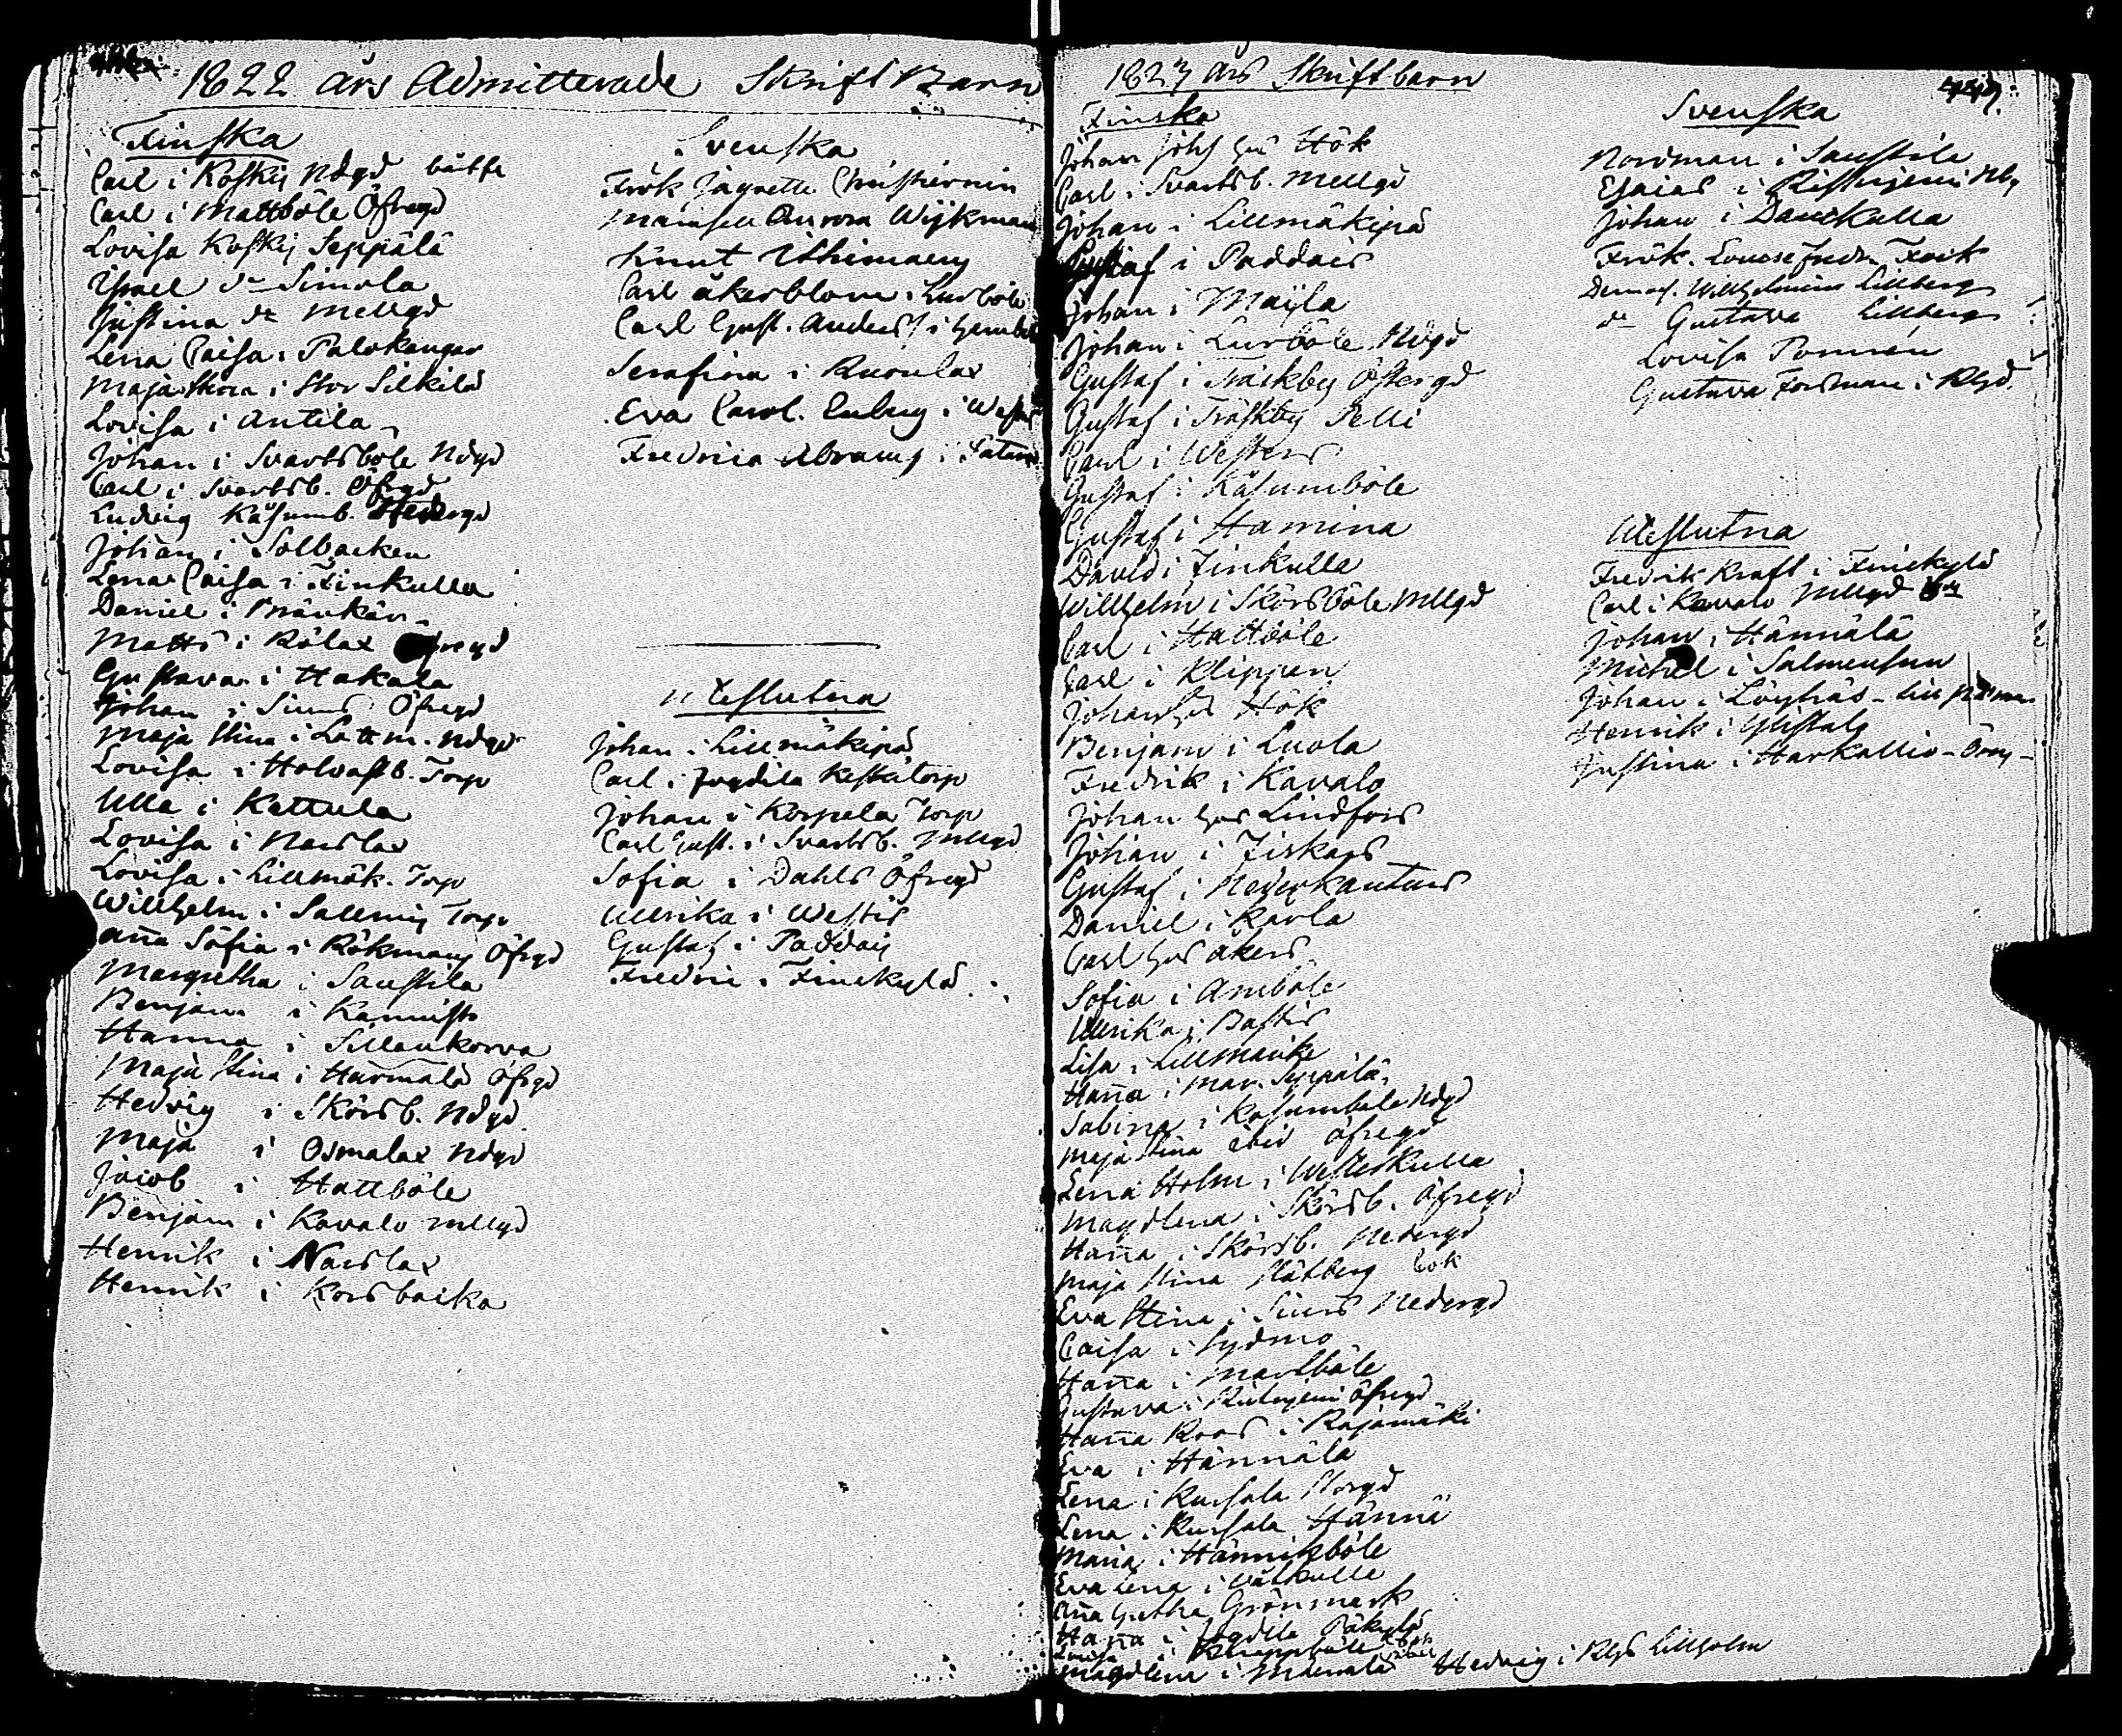 1822 års Admitterade Skrift Barn
Finska
Carl i Koskis Ndgd bätte
Carl i Mattböle Öfregd
Lovisa Koskis Seppälä
Israel do Simola
Justina do Mellgd
Lena Caisa i Palokangas
Maja Stina i Stor Silkilä
Lovisa i Antila
Johan i Svartsböle Ndgd
Carl i Svartsb. Öfregd
Ludvig Kåsumb.
Johan i Solbacken
Lena Caisa i Finkulla
Daniel i Bränkärr
Matts i Rölax
Gustava i Hakala
Johan i Siuns Öfregd
Maja Stina i Lättm. Ndgd
Lovisa i Holvastb. Torp
Ulla i Kattula
Lovisa i Narslax
Lovisa i Lillmäk. Torp
Willhelm i Sallmis Torp
Anna Sofia i Rökmans Öfregd
Margretha i Saustila
Benjam i Kannisto
Hanna i Sillankorva
Maja Stina i Härmälä Öfrgd
Hedvig i Skörsb. Ndgd
Maja i Osmalax Ndgd
Jacob i Hattböle
Benjam i Kavalo Mellgd
Henrik i Narslax
Henrik i Korsbacka
Svenska
Frök Jaquette Christiernin
Mamsell Aurora Wijkman
Knut Uhiman
Carl Åkerblom i Lurböle
Carl Gust. Anders i
Serafina i Ruonlax
Eva Carol. Enberg i
Fredrica Abrams i
Uteslutna
Johan i Lillmäkipä
Carl i Jogdila Keskitorp
Johan i Korpela Torp
Carl Gust. i Svartsb. Mellgd
Sofia i Dahls Öfregd
Ullrika i Westis
Gustaf i Paddais
Fredric i Finskylä
1823 års Skriftbarn
Finska
Johan Johs hus Hök
Carl i Svartsb. Mellgd
Johan i Lillmäkipä
Gustaf i Paddais
Johan i Maijla
Johan i Lurböle Ndgd
Gustaf i Träskby Östergd
Gustaf i Träskby Pelli
Carl i Westers
Gustaf i Kåsumböle
Gustaf i Hamina
David i Finkulla
Willhelm i Skörsböle Mllgd
Carl i Hattböle
Carl i Klippan
Johan hos Hök
Benjam i Luola
Fredrik i Kavalo
Johan hos Lindfors
Johan i Fiskars
Gustaf i Nederkanturs
Daniel i Karla
Carl hos Åkers
Sofia i Amböle
Ullrika i Bastis
Lisa i Lillmäki
Hanna i Mar. Seppälä
Sabina i Kåsumböle Ndgd
Maja Stina ibid öfregd
Lena Holm i Westerkulla
Magdlena i Skörsb. Öfregd
Hanna i Skörsb. Nedergd
Maja Stina Slätberg
Eva Stina i Siuns Nedergd
Caisa i Sydmo
Hanna i Marsböle
Gustava i Öfregd
Hanna Roos i Rajamäki
Eva i Hännälä
Lena i Kursala Storgd
Lena i Kursala Hännä
Maria i Hännikböle
Eva Lena i Wålkulle
Anna Gretha Grönmark
Hanna i Jogdila Päkylä
Lovisa i Knappböle
Magdlena i Männälä
Hedvig i Klys Lillholm
Svenska
Nordman i Saustila
Esaias i
Johan i Danskulla
Frök. Lovise Fredr. Fock
Demois. Willhelmina Lillberg
do Gustava Lillberg
Lovisa Ponnän
Gustava Forsman i
Uteslutna
Fredrik Kraft i Finskylä
Carl i Kavalo Mellgd
Johan i Hännälä
Michel i Salmensuu
Johan i
Henrik i Gustafs
Justina i Harkallio